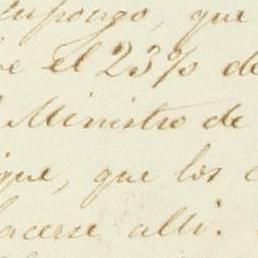 supongo, que
el 23% de
Ministro de
que, que los
hacerse alli.